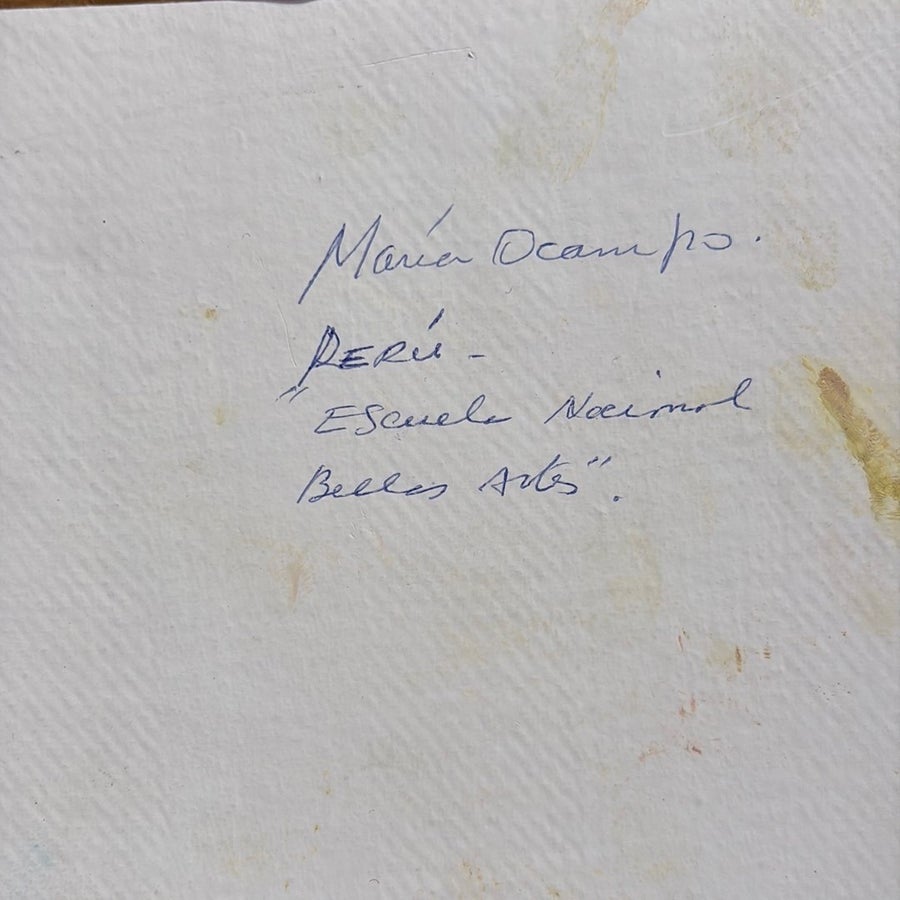 María Ocampo.
PERÚ -
"Escuela Nacional
Bellas Artes".